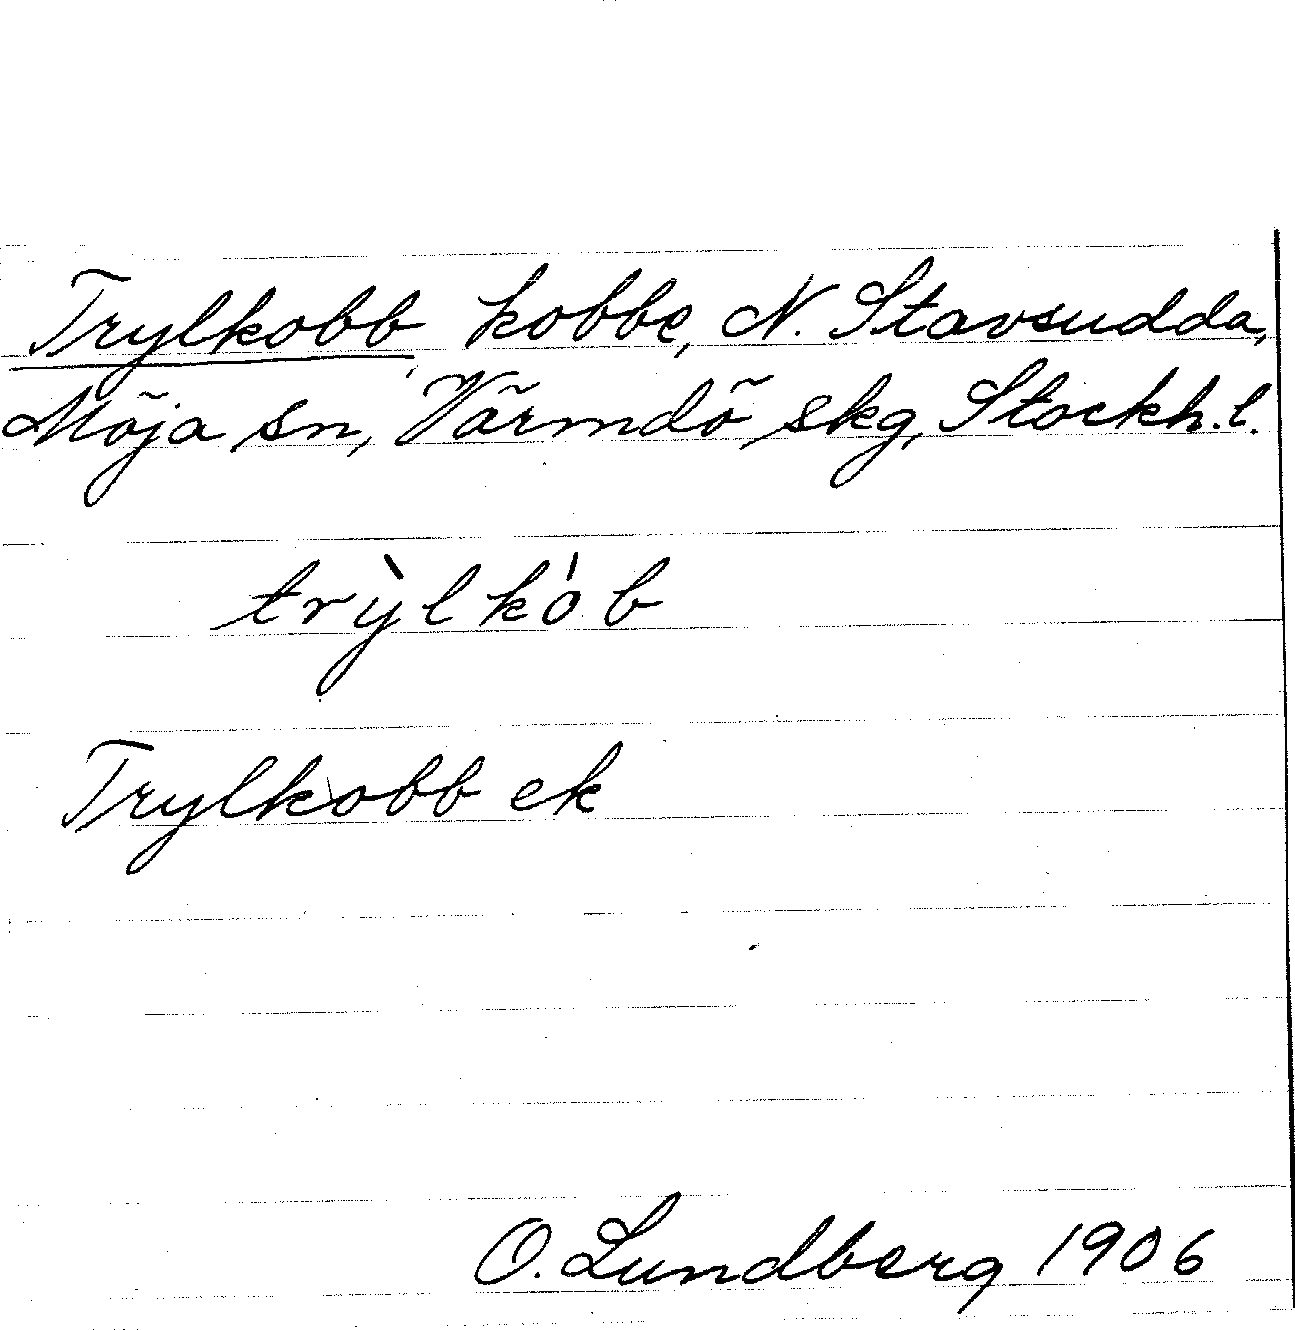 Trylkobb, kobbe, N. Stavsudda,
Möja sn, Värmdö skg, Stockh. l.
trỳlkób
Trylkobb ek
O. Lundberg 1906